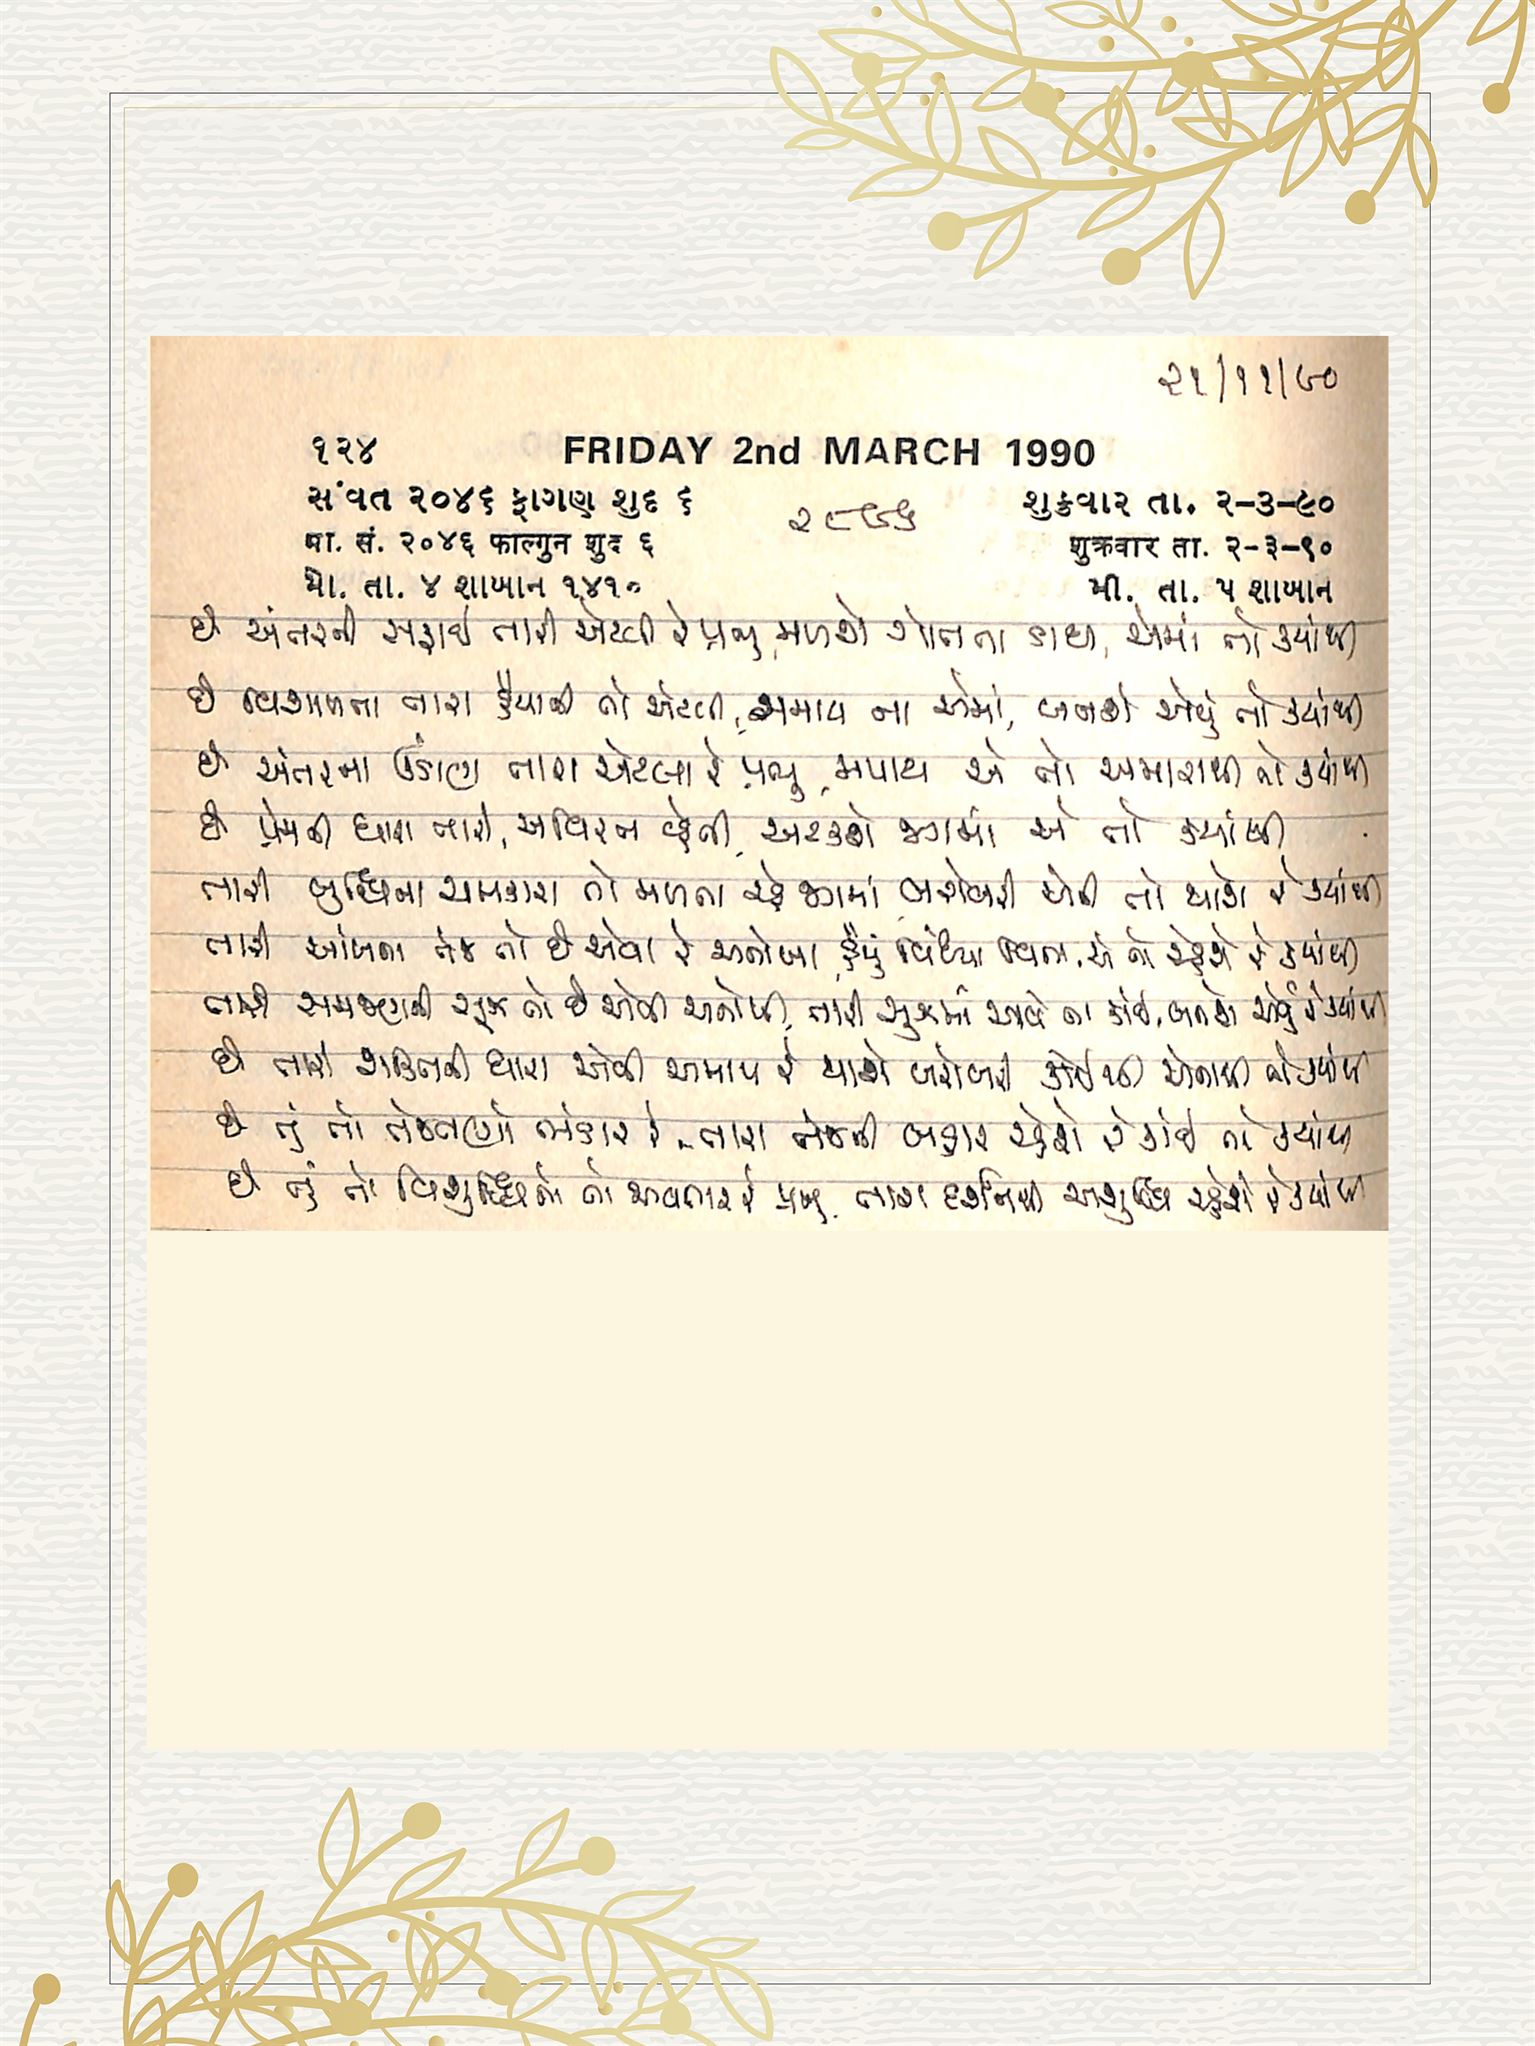 ૨૧/૧૧/૯૦
૧૨૪ FRIDAY 2nd MARCH 1990
સંવત ૨૦૪૬ ફાગણ શુદ ૬ શુક્રવાર તા. ૨-૩-૯૦
મા. સં. ૨૦૪૬ फाल्गुन शुद ६ शुक्रवार ता. २-३-९०
મો. તા. ૪ શાબાન ૧૪૧૦ મી. તા. ૫ શાબાન
છે અંતરની સફાઈ તારી એટલી રે પ્રભુ, મળશે ગોતતા ડાઘ, એમાં તો ક્યાંથી
છે વિશાળતા તારા હૈયાની તો એટલી, સમાય ના એમાં, બનશે એવું તો ક્યાંથી
છે અંતરના ઊંડાણ તારા એટલા રે પ્રભુ, મપાય એ તો અમારાથી તો ક્યાંથી
છે પ્રેમની ધારા તારી, અવિરત વ્હેતી, અટકશે જગમાં એ તો ક્યાંથી
તારી બુદ્ધિના ચમકારા તો મળતા રહે જગમાં, બરોબરી એની તો થાશે રે ક્યાંથી
તારી આંખના તેજ તો છે એવા રે અનોખા, હૈયું વિંધ્યા વિના, એ તો રહેશે રે ક્યાંથી
તારી સમજણની સૂઝ તો છે એવી અનોખી, તારી સૂઝમાં આવે ના કોઈ, બનશે એવું રે ક્યાંથી
છે તારી શક્તિની ધારા એવી અમાપ રે થાશે બરોબરી કોઈથી એનાથી તો ક્યાંથી
છે તું તો તેજતણો ભંડાર રે, તારા તેજની બહાર રહેશે રે કોઈ તો ક્યાંથી
છે તું તો વિશુદ્ધિનો તો અવતાર રે પ્રભુ, તારા દર્શનથી અશુદ્ધિ રહેશે રે ક્યાંથી